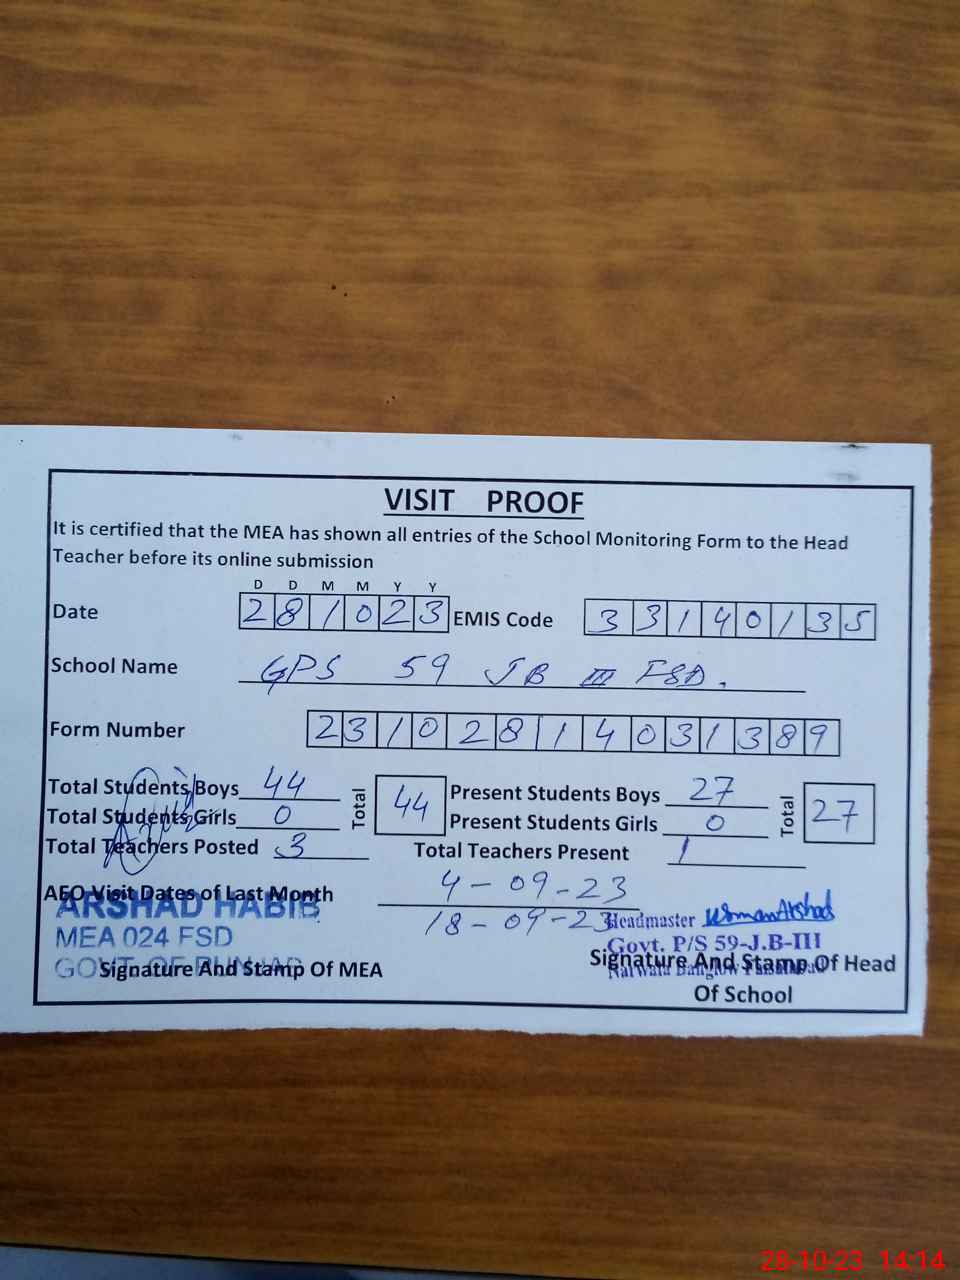 VISIT PROOF
It is certified that the MEA has shown all entries of the School Monitoring Form to the Head
Teacher before its online submission
D D M M Y Y
Date 281023 EMIS Code 33140135
School Name GPS 59 JB III FSD.
Form Number 231028114031389
Total Students Boys 44 Total 44 Present Students Boys 27 Total 27
Total Students Girls 0 Present Students Girls 0
Total Teachers Posted 3 Total Teachers Present 1
AEO Visit Dates of Last Month 4-09-23
18-09-23
ARSHAD HABIB
MEA 024 FSD
GOVT OF PUNJAB
Signature And Stamp Of MEA
Headmaster Usman Arshad
Govt. P/S 59-J.B-III
Signature And Stamp Of Head
Of School
28-10-23 14:14